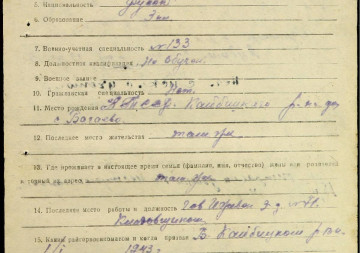 5. Национальность
6. Образование 4 Эл.
7. Военно-учетная специальность №133
8. Должностная квалификация Не обучен
9. Военное звание
10. Гражданская специальность Нет.
11. Место рождения Т.А.С.С.Р. Кайбицкого р-на дер
с Багаево
12. Последнее место жительства там же
13. Где проживает в настоящее время семья (фамилия, имя, отчество) жены или родителей
и точный их адрес там же
14. Последнее место работы и должность
15. Каким райгорвоенкоматом и когда призван Кайбицким РВК
1943 г.